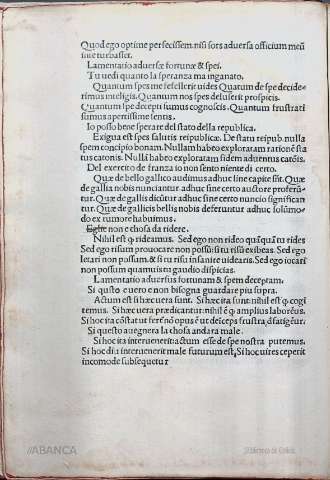 Quod ego optime perfecissem. nisi sors aduersa officium meũ
interturbasset.
Lamentatio aduersæ fortunæ & spei.
Tu uedi quanto la speranza ma inganato.
Quantum spes me fefellerit uides Quatum de spe decide-
rimus inteligis. Quantum nos spes deluserit prospicis.
Quantum spe decepti sumus cognoscis. Quantum frustrati
sumus apertissime sentis.
Io posso bene sperare del stato della republica.
Exigua est spes salutis reipublicæ. De statu reipub. nulla
spem concipio bonam. Nullam habeo exploratam rationẽ sta
tus catonis. Nullã habeo exploratam fidem aduentus catõis.
Del exercito de franza io non sento niente di certo.
Quæ de bello gallico audimus adhuc sine capite sũt. Quæ
de gallia nobis nunciantur. adhuc sine certo auctore proferũ-
tur. Quæ de gallis dicũtur adhuc sine certo nuncio significan
tur. Quæ de gallicis bellis nobis deferuntur adhuc solũmo/
do ex rumore habuimus.
Eglie non e chosa da ridere.
Nihil est q rideamus. Sed ego non rideo quãquã tu rides
Sed ego risum prouocare non possũ si tu risũ exibeas. Sed ego
letari non possum. & si tu risu insanire uidearis. Sed ego iocari
non possum quamuis tu gaudio dispicias.
Lamentatio aduersus fortunam & spem deceptam.
Si questo e uero e non bisogna guardare piu sopra.
Actum est si hæc uera sunt. Si hæc ita sunt: nihil est q cogi
temus. Si hæc uera prædicantur: nihil ẽ q amplius laboreũs.
Si hoc ita cõstat ut ferẽ nõ opus ẽ ut deiceps frustra dfatigẽur.
Si questo auegnera la chosa andara male.
Si hoc ita interuenerit: actum esse de spe nostra putemus.
Si hoc di ita interuenerit male futurum est, Si hoc uires ceperit
incomode subsequetur
//ABANCA
Biblioteca de Galicia